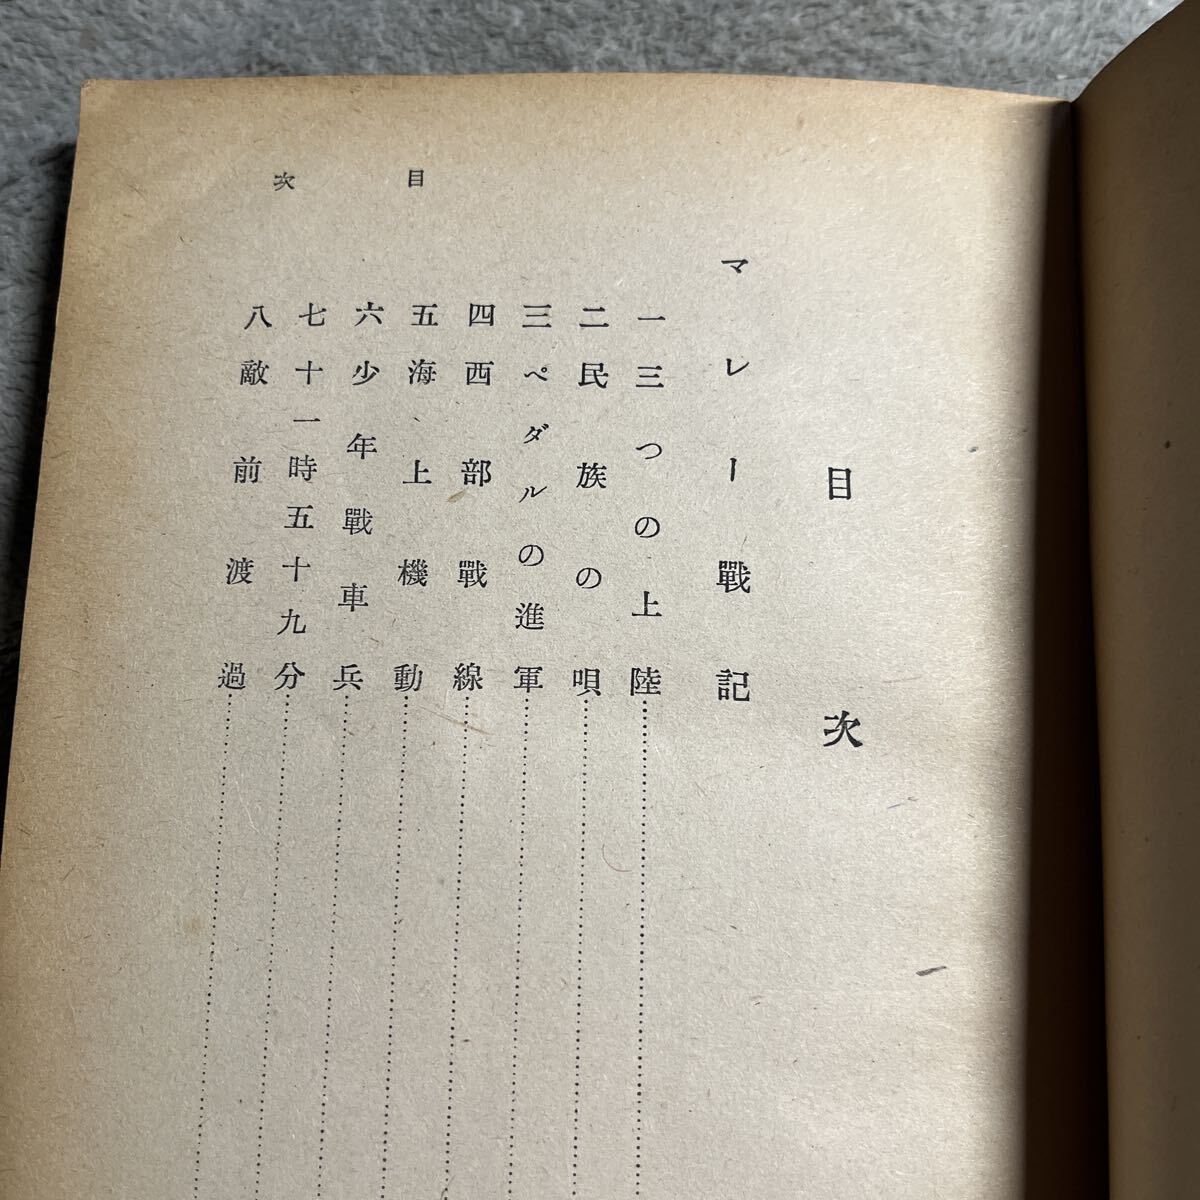 目次
目次
マレー戰記
一 三つの上陸
二 民族の唄
三 ペダルの進軍
四 西部戰線
五 海上機動
六 少年戰車兵
七 十一時五十九分
八 敵前渡過